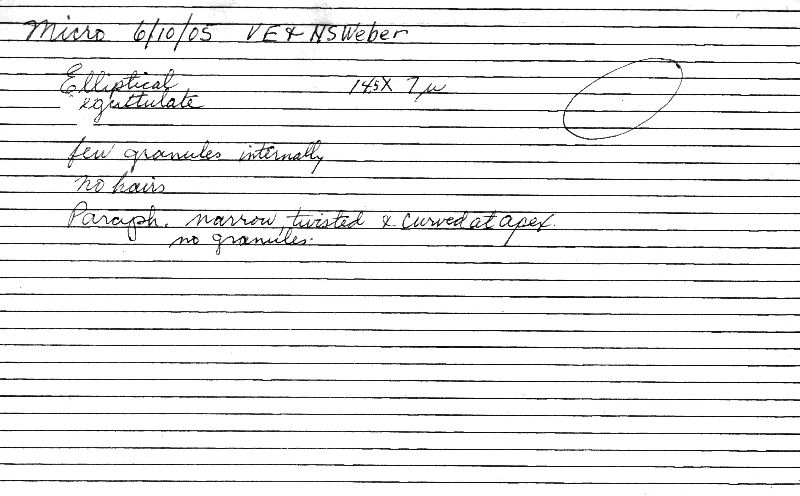 Micro 6/10/05 VE & NSWeber
Elliptical 14.5 X 7 µ
eguttulate
few granules internally
no hairs
Paraph. narrow, twisted & curved at apex.
no granules.